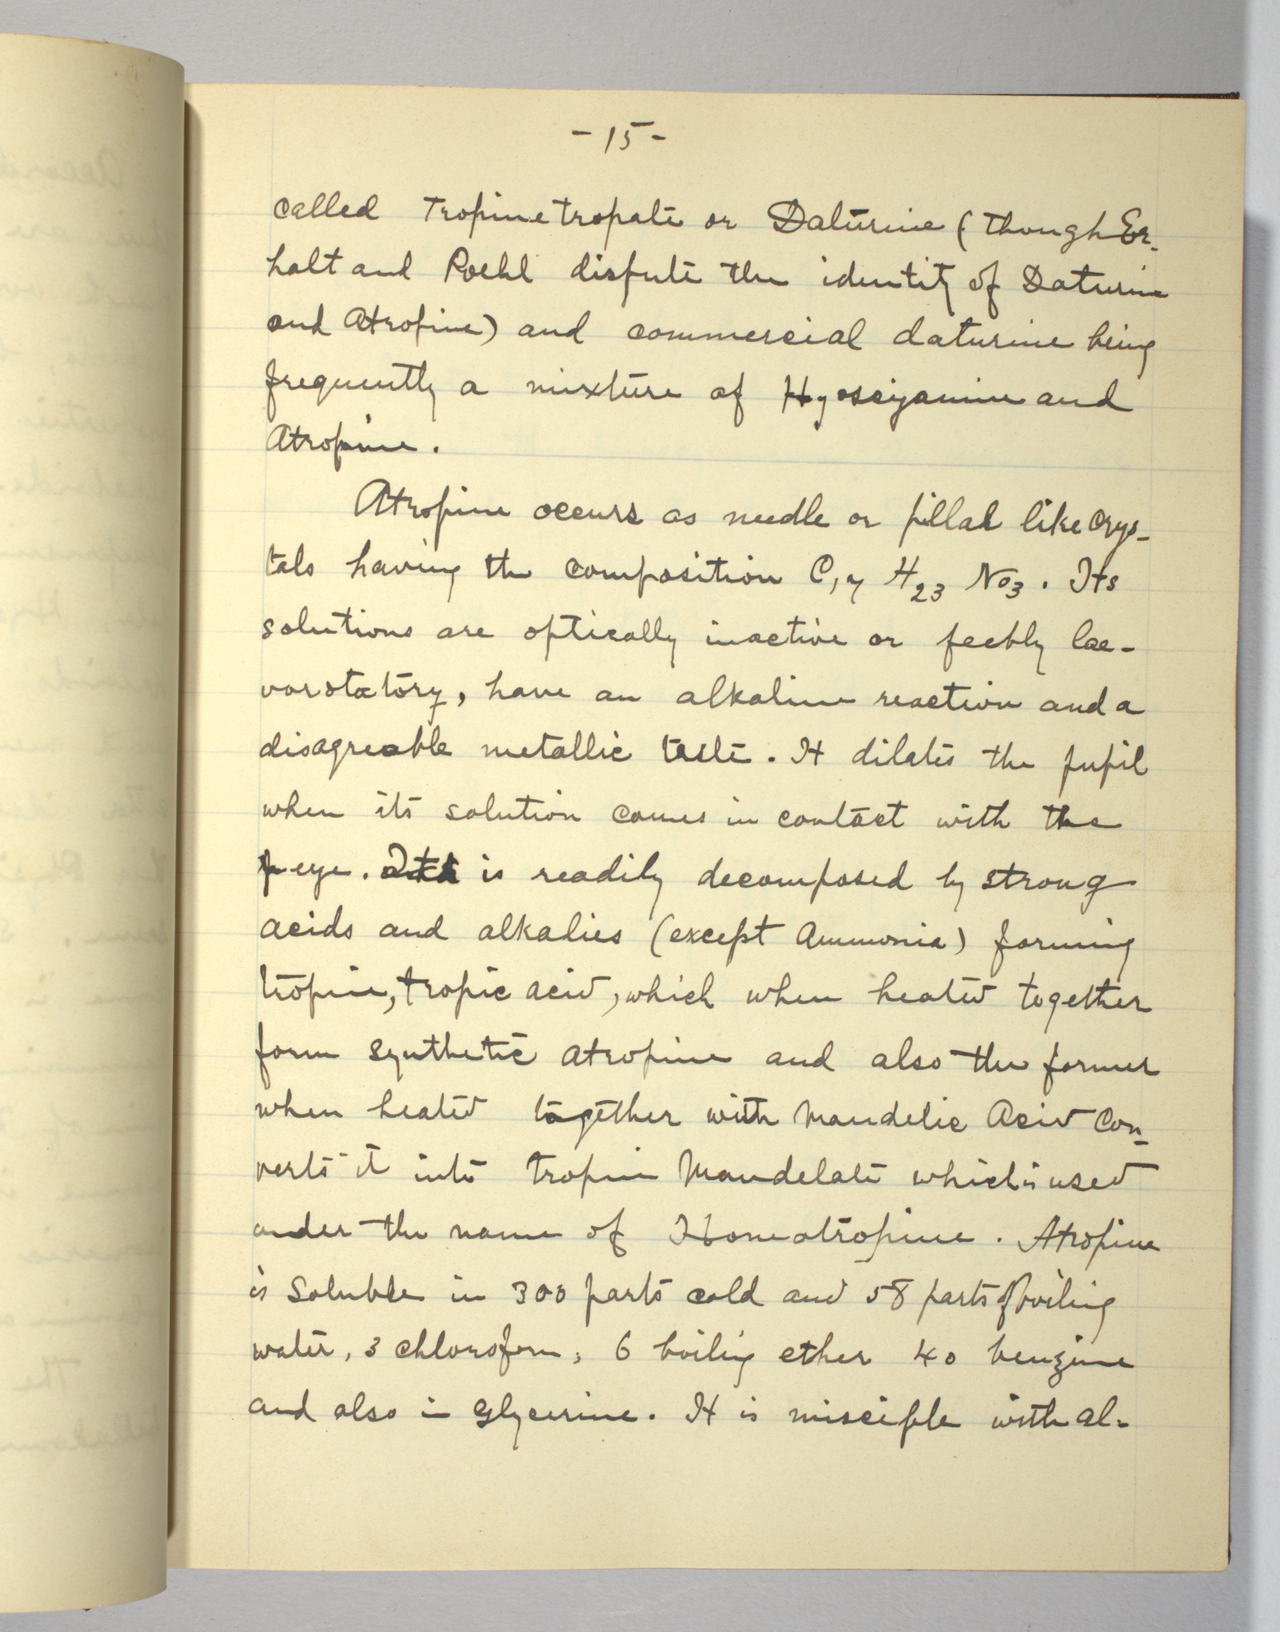 -15-
called Tropinetropate or Daturine (though Er-
halt and Poehl dispute the identity of Daturine
and Atropine) and commercial daturine being
frequently a mixture of Hyosciyamine and
Atropine.
Atropine occurs as needle or pillar like crys-
tals having the composition C17 H23 NO3. Its
solutions are optically inactive or feebly lae-
vorotatory, have an alkaline reaction and a
disagreable metallic taste. It dilates the pupil
when its solution comes in contact with the
eye. It is readily decomposed by strong
acids and alkalies (except Ammonia) forming
tropine, tropic acid, which when heated together
form synthetic atropine and also the former
when heated together with Mandelic Acid Con-
verts it into tropin Mandelate which is used
under the name of Homatropine. Atropine
is Soluble in 300 parts cold and 58 parts of boiling
water, 3 chloroform, 6 boiling ether 40 benzine
and also in glycerine. It is misciple with al-